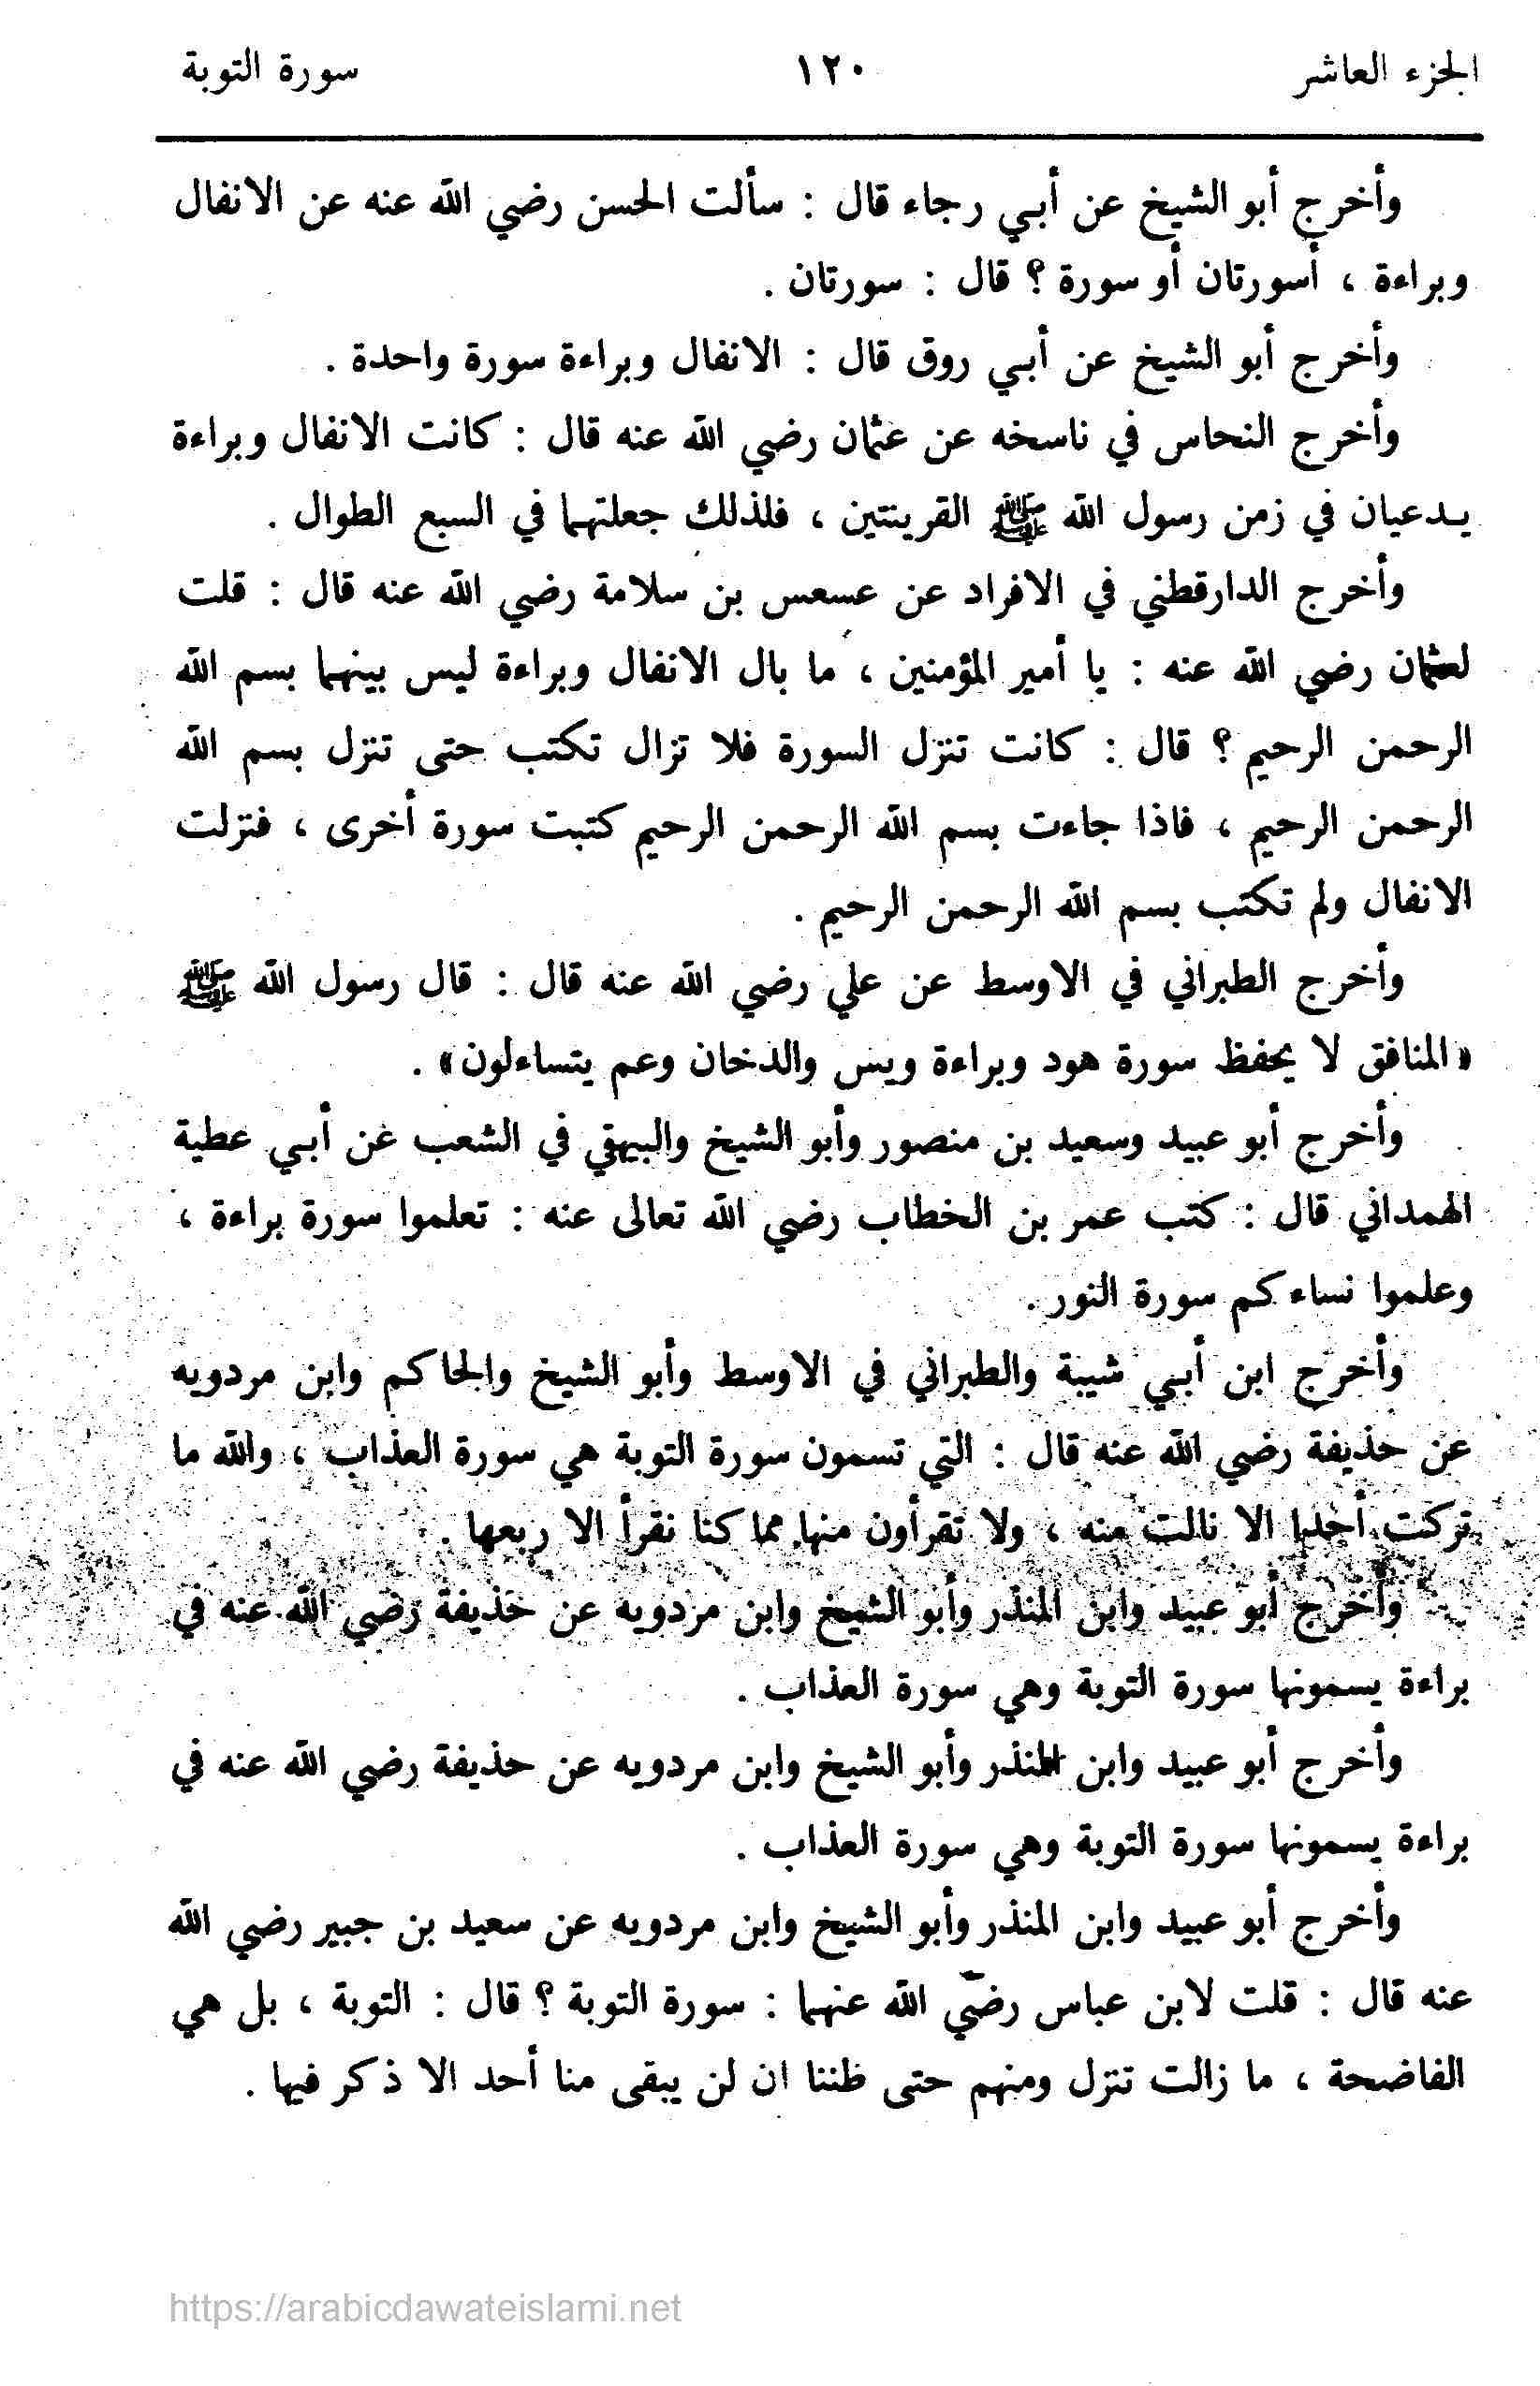 الجزء العاشر ١٢٠ سورة التوبة
وأخرج أبو الشيخ عن أبي رجاء قال : سألت الحسن رضي الله عنه عن الانفال
وبراءة ، أسورتان أو سورة ؟ قال : سورتان .
وأخرج أبو الشيخ عن أبي روق قال : الانفال وبراءة سورة واحدة .
وأخرج النحاس في ناسخه عن عثمان رضي الله عنه قال : كانت الانفال وبراءة
يدعيان في زمن رسول الله ﷺ القرينتين ، فلذلك جعلتهما في السبع الطوال .
وأخرج الدارقطني في الافراد عن عسعس بن سلامة رضي الله عنه قال : قلت
لعثمان رضي الله عنه : يا أمير المؤمنين ، ما بال الانفال وبراءة ليس بينهما بسم الله
الرحمن الرحيم ؟ قال : كانت تنزل السورة فلا تزال تكتب حتى تنزل بسم الله
الرحمن الرحيم ، فاذا جاءت بسم الله الرحمن الرحيم كتبت سورة أخرى ، فنزلت
الانفال ولم تكتب بسم الله الرحمن الرحيم .
وأخرج الطبراني في الاوسط عن علي رضي الله عنه قال : قال رسول الله ﷺ
« المنافق لا يحفظ سورة هود وبراءة ويس والدخان وعم يتساءلون» .
وأخرج أبو عبيد وسعيد بن منصور وأبو الشيخ والبيهقي في الشعب عن أبي عطية
الهمداني قال : كتب عمر بن الخطاب رضي الله تعالى عنه : تعلموا سورة براءة ،
وعلموا نساءكم سورة النور .
وأخرج ابن أبي شيبة والطبراني في الاوسط وأبو الشيخ والحاكم وابن مردويه
عن حذيفة رضي الله عنه قال : التي تسمون سورة التوبة هي سورة العذاب ، والله ما
تركت أحدا الا نالت منه ، ولا تقرأون منها مما كنا نقرأ الا ربعها .
وأخرج أبو عبيد وابن المنذر وأبو الشيخ وابن مردويه عن حذيفة رضي الله عنه في
براءة يسمونها سورة التوبة وهي سورة العذاب .
وأخرج أبو عبيد وابن المنذر وأبو الشيخ وابن مردويه عن حذيفة رضي الله عنه في
براءة يسمونها سورة التوبة وهي سورة العذاب .
وأخرج أبو عبيد وابن المنذر وأبو الشيخ وابن مردويه عن سعيد بن جبير رضي الله
عنه قال : قلت لابن عباس رضي الله عنهما : سورة التوبة ؟ قال : التوبة ، بل هي
الفاضحة ، ما زالت تنزل ومنهم حتى ظننا ان لن يبقى منا أحد الا ذكر فيها .
https://arabicdawateislami.net